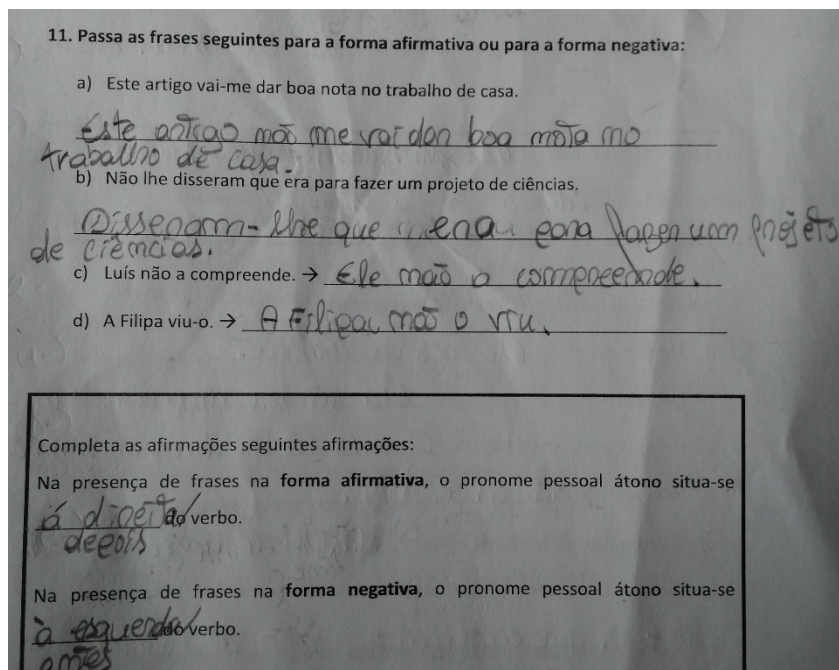 11. Passa as frases seguintes para a forma afirmativa ou para a forma negativa:
a) Este artigo vai-me dar boa nota no trabalho de casa.
Este artigo não me vai dar boa nota no
trabalho de casa.
b) Não lhe disseram que era para fazer um projeto de ciências.
Disseram-lhe que era para fazer um projeto
de ciências.
c) Luís não a compreende. → Ele não a compreende.
d) A Filipa viu-o. → A Filipa não o viu.
Completa as afirmações seguintes afirmações:
Na presença de frases na forma afirmativa, o pronome pessoal átono situa-se
á direita do verbo.
depois
Na presença de frases na forma negativa, o pronome pessoal átono situa-se
à esquerda do verbo.
antes